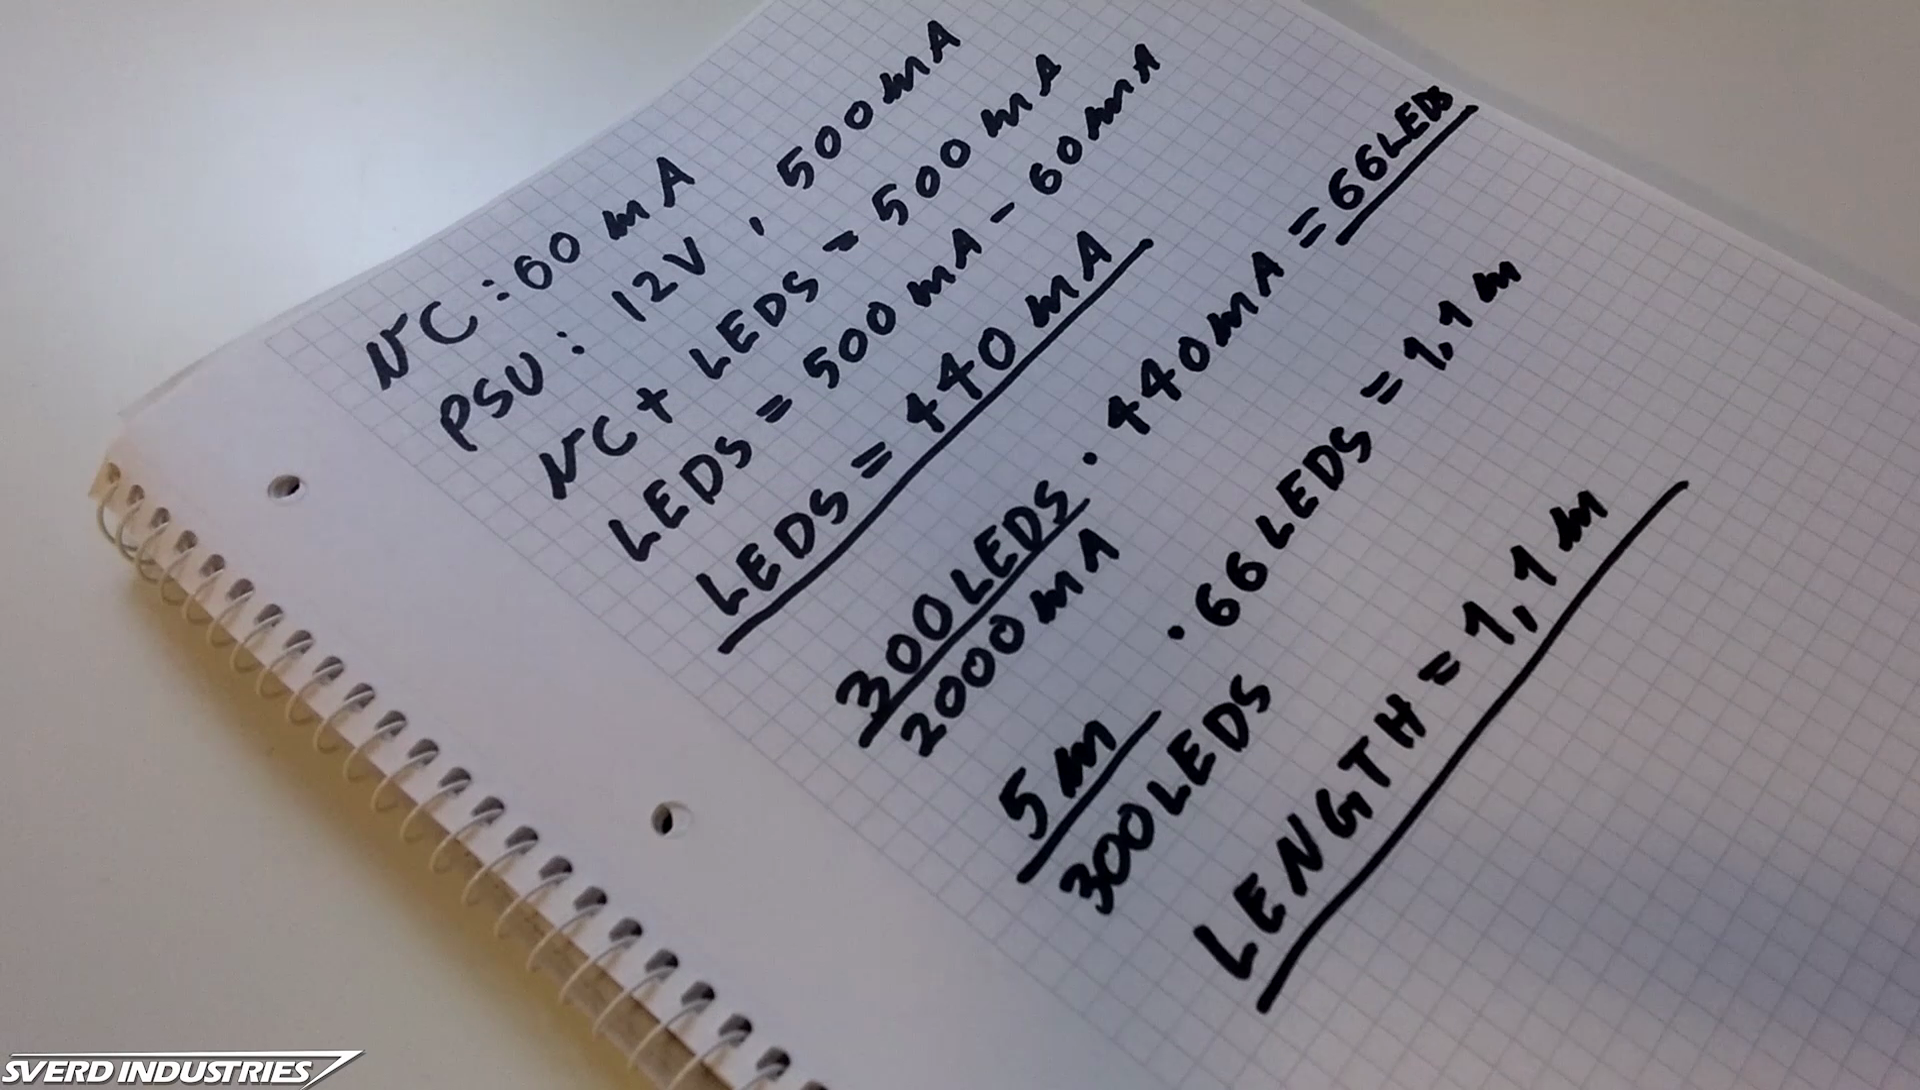 NC: 60 mA
PSU: 12V, 500mA
NC + LEDS = 500 mA
LEDS = 500 mA - 60mA
LEDS = 440 mA
300LEDS
2000mA
· 440mA = 66LEDS
5m
300LEDS
· 66LEDS = 1,1m
LENGTH = 1,1m
SVERD INDUSTRIES